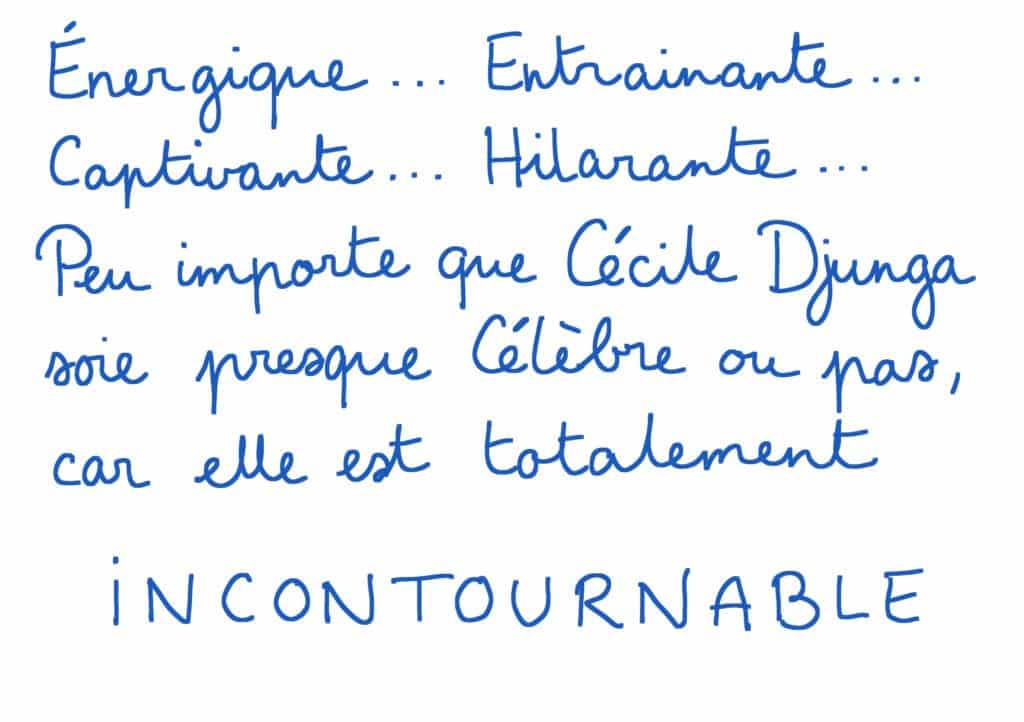 Énergique... Entrainante...
Captivante... Hilarante...
Peu importe que Cécile Djunga
soie presque Célèbre ou pas,
car elle est totalement
iNCONTOURNABLE